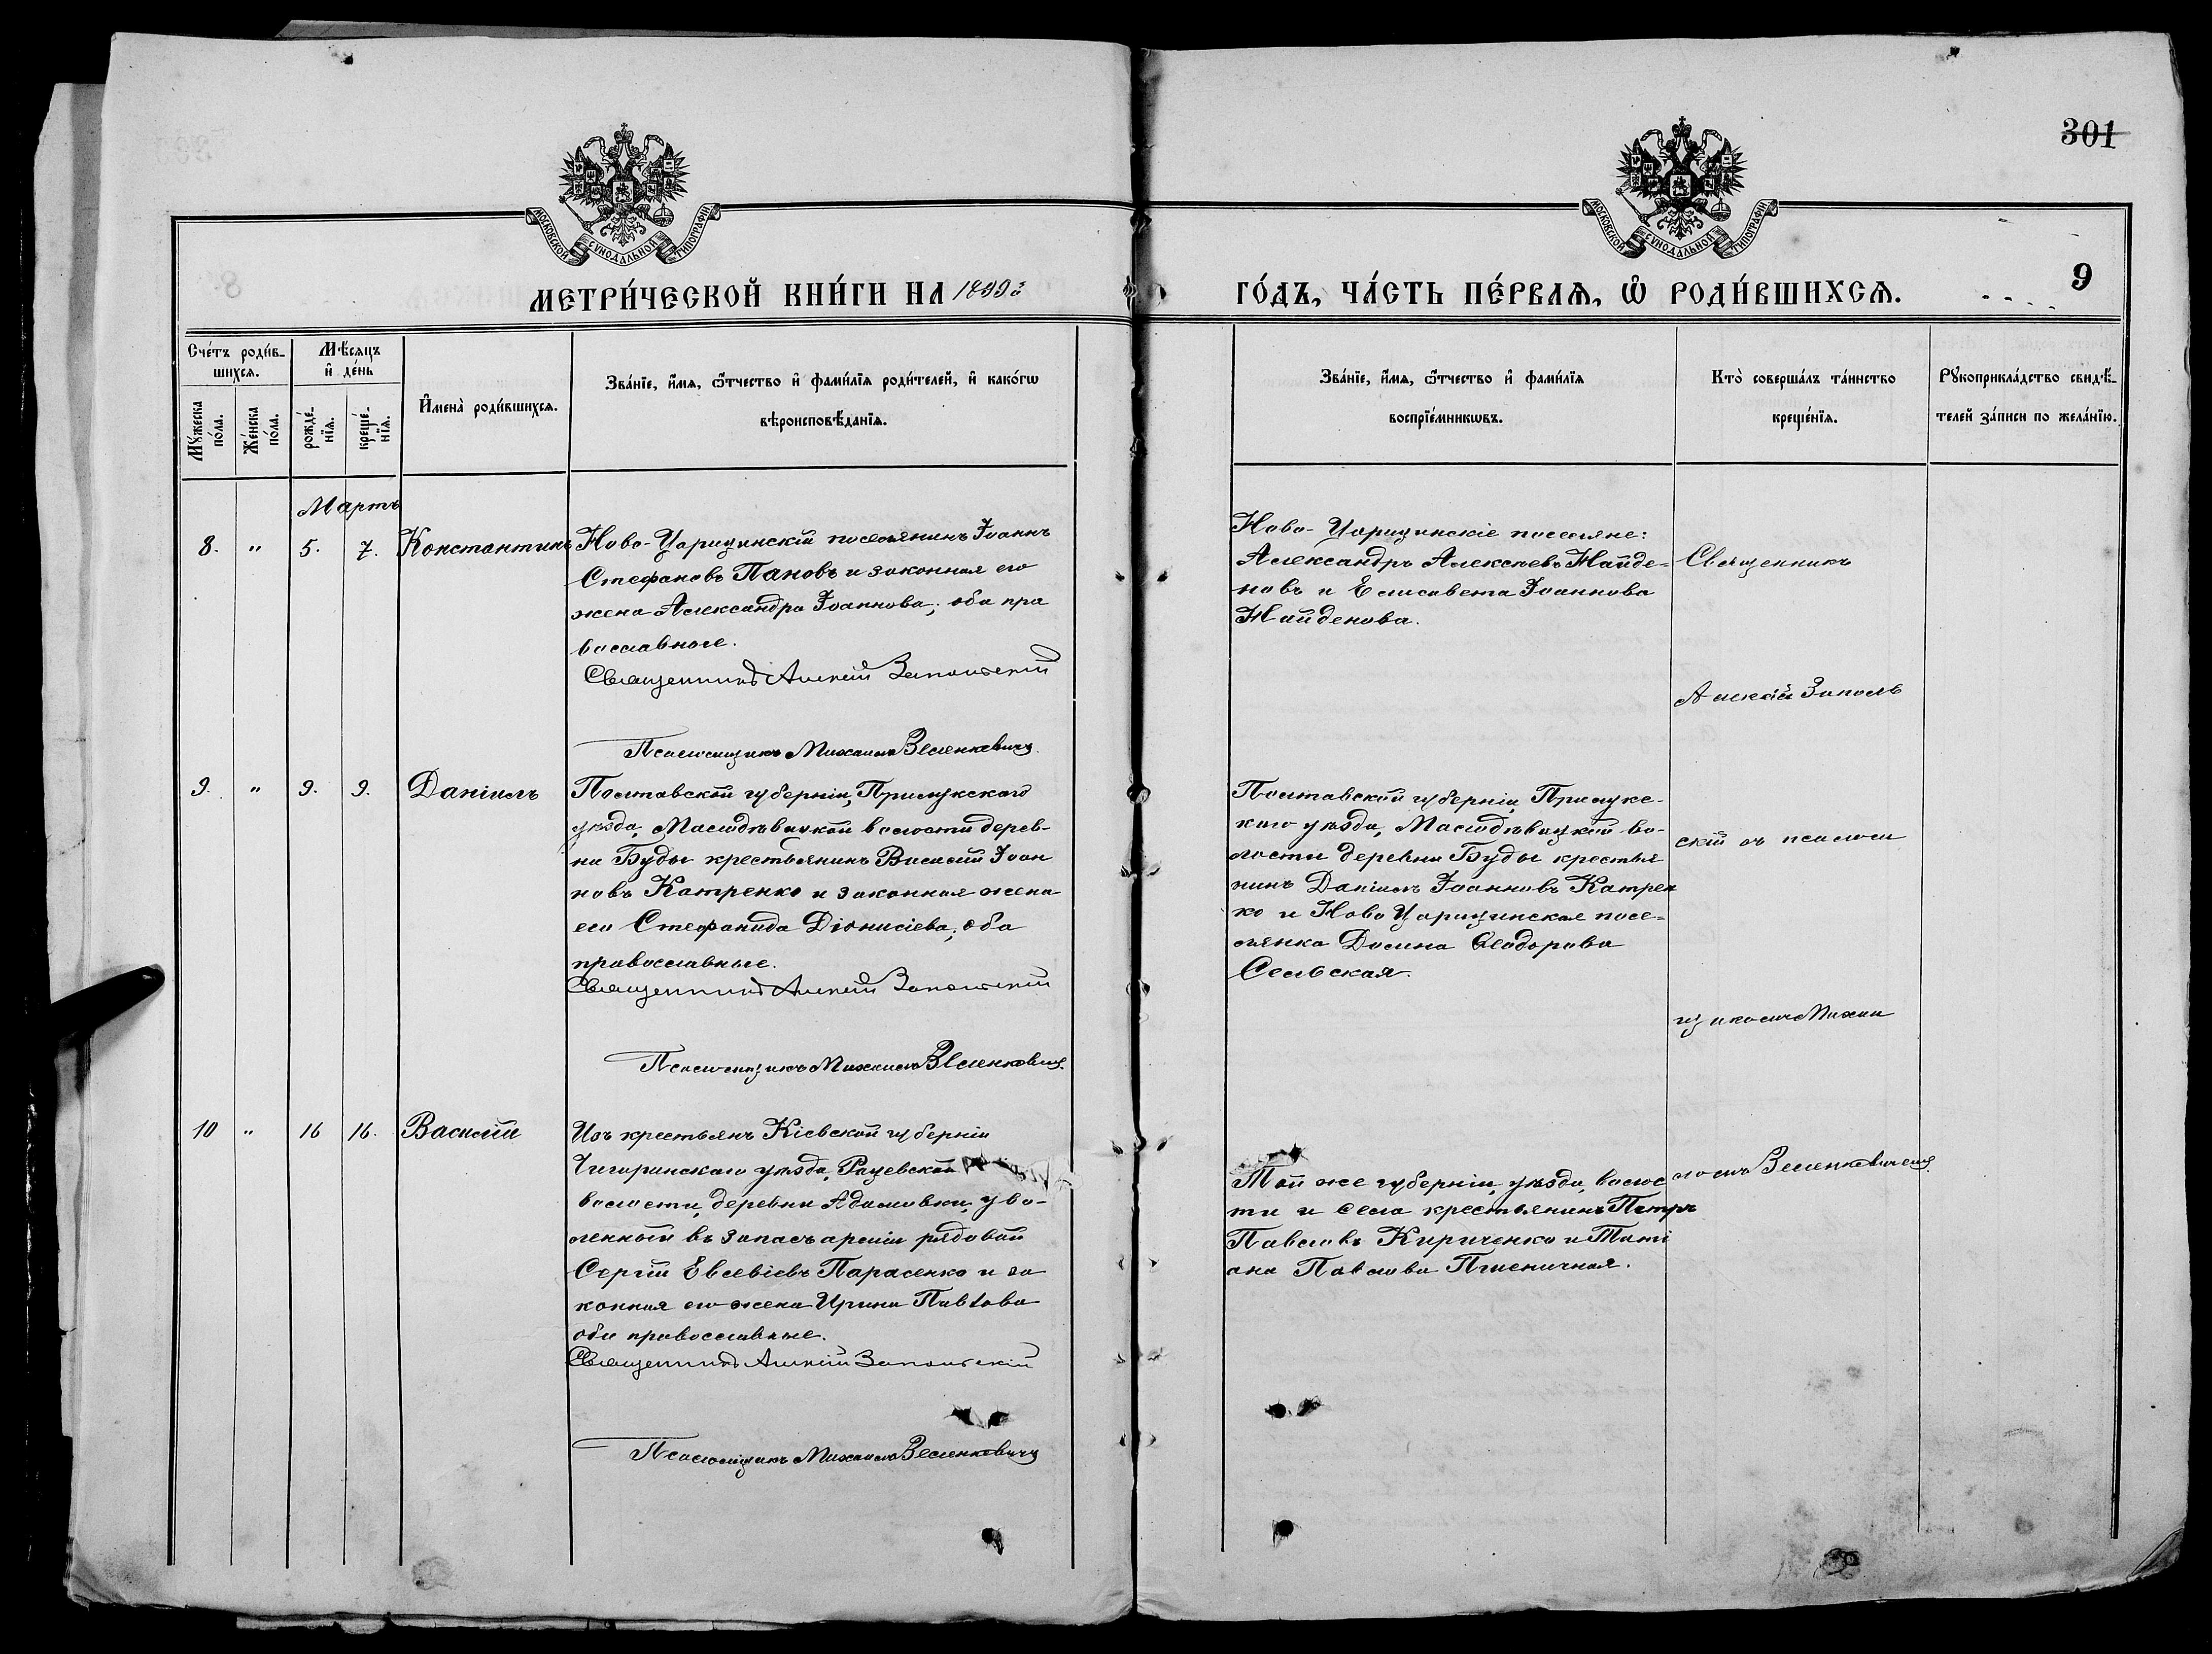 301
МОСКОВСКОЙ СУНОДАЛЬНОЙ ТИПОГРАФІИ
МОСКОВСКОЙ СУНОДАЛЬНОЙ ТИПОГРАФІИ
9
МЕТРИ́ЧЕСКОЙ КНИ́ГИ НА 1899й
ГО́ДЪ, ЧА́СТЬ ПЕ́РВАѦ, Ѡ҆ РОДИ́ВШИХСѦ.
Сче́тъ роди́в-
шихсѧ.
Мꙋ́жеска
по́ла.
Же́нска
по́ла.
Мѣ́сѧцъ
и҆ де́нь
рожде́-
нїѧ.
креще́-
нїѧ.
И҆мена̀ роди́вшихсѧ.
Зва́нїе, и҆́мѧ, ѻ҆́тчество и҆ фами́лїѧ роди́телей, и҆ како́гѡ
вѣроисповѣ́данїѧ.
Зва́нїе, и҆́мѧ, ѻ҆́тчество и҆ фами́лїѧ
воспрїе́мникѡвъ.
Кто̀ соверша́лъ та́инство
креще́нїѧ.
Рꙋкоприкла́дство свидѣ́-
телей за́писи по жела́нїю.
Мартъ
8. " 5. 7. Константинъ
Ново-Царицинскій поселянинъ Іоаннъ
Стефановъ Пановъ и законная его
жена Александра Іоаннова; оба пра
вославные.
Священникъ Алексій Запольскій
Псаломщикъ Михаилъ Зеленкевичъ.
Ново-Царицинскіе поселяне:
Александръ Алексѣевъ Найде=
новъ и Елисавета Іоаннова
Найденова.
9. " 9. 9. Даніилъ
Полтавской губерніи, Прилукскаго
уѣзда, Малодѣвицкой волости дерев-
ни Буды крестьянинъ Василій Іоан
новъ Катренко и законная жена
его Стефанида Діонисіева; оба
православные.
Священникъ Алексій Запольскій
Псаломщикъ Михаилъ Зеленкевичъ.
Полтавской губерніи, Прилукс-
каго уѣзда, Малодѣвицкой во-
лости деревни Буды крестья
нинъ Даніилъ Іоанновъ Катрен
ко и Ново Царицинская посе=
лянка Домна Ѳеодорова
Сельская.
10 " 16 16. Василій
Изъ крестьянъ Кіевской губерніи
Чигиринскаго уѣзда, Рацевской
волости, деревни Адамовки, уво-
ленный въ запасъ арміи рядовой
Сергій Евсевіевъ Парасенко и за
конная его жена Ирина Павлова
оба православные.
Священникъ Алексій Запольскій
Псаломщикъ Михаилъ Зеленкевичъ
Той же губерніи, уѣзда, волос
ти и села крестьянинъ Петръ
Павловъ Кириченко и Таті
ана Павлова Пшеничная.
Священникъ
Алексій Заполь
скій съ псалом
щикомъ Михаи
ломъ Зеленкевичемъ.